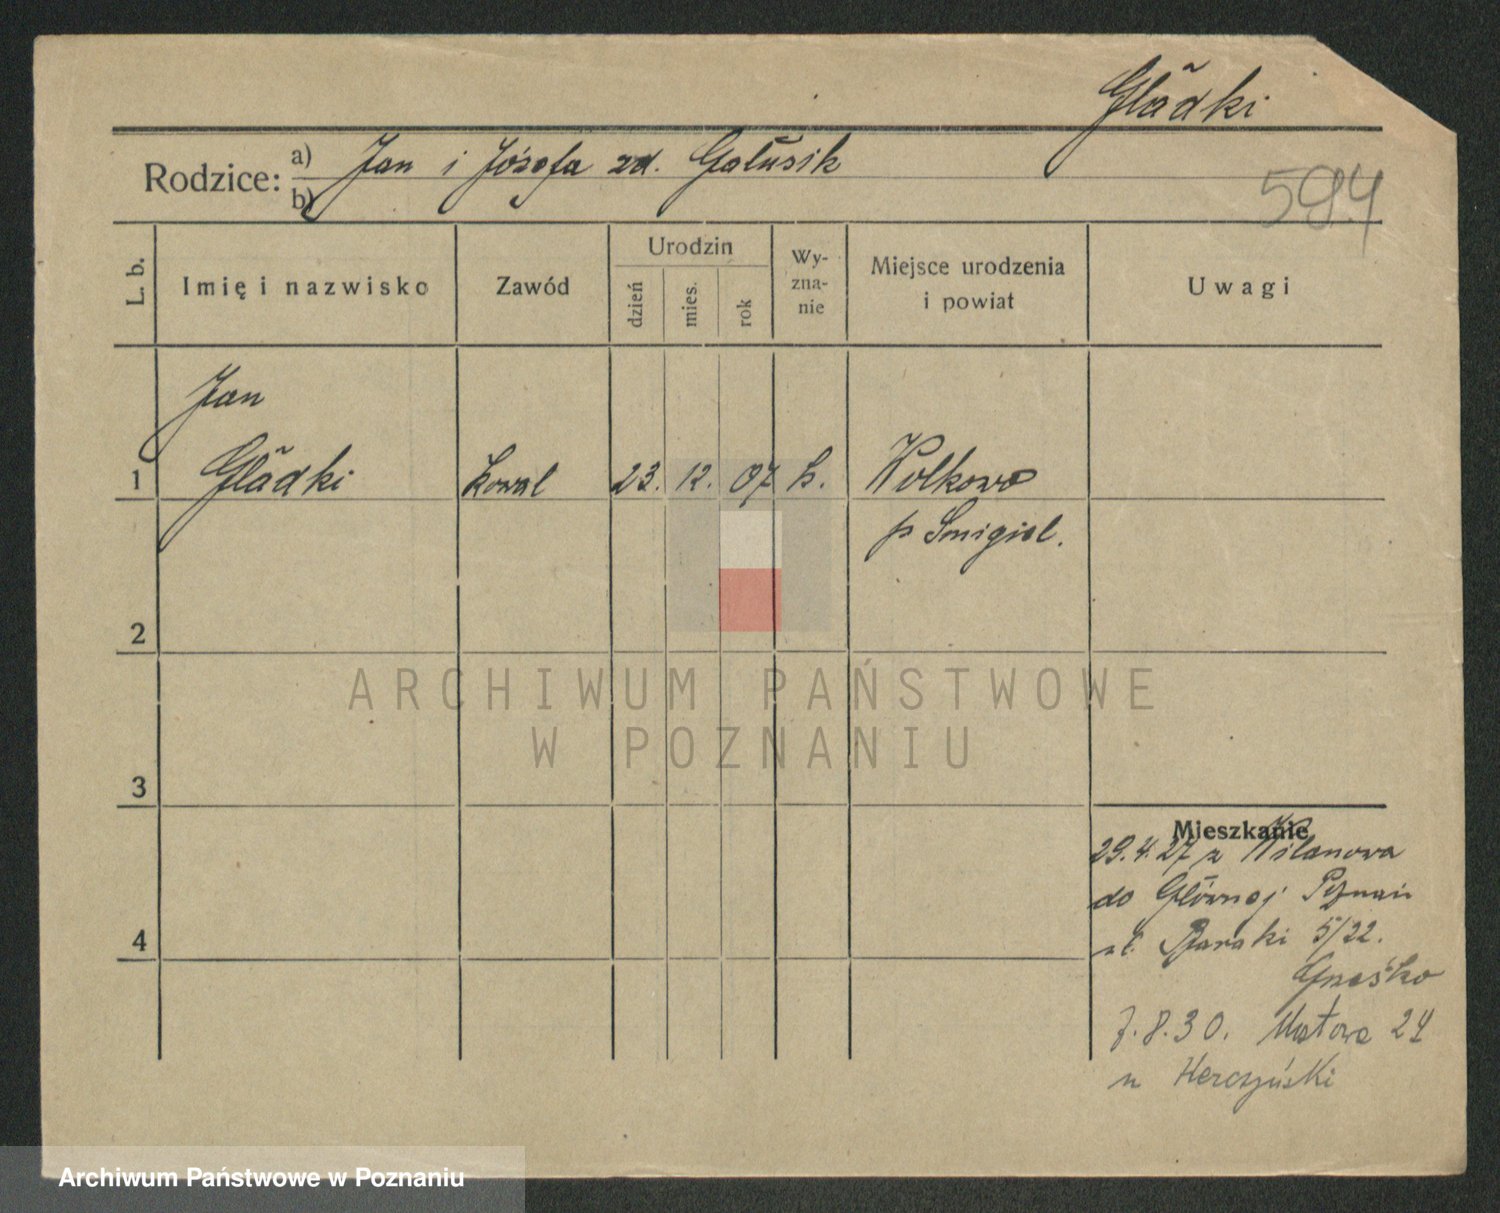 Gładki
Rodzice: a) Jan i Józefa zd. Gałusik
b)
594
L. b.
Imię i nazwisko
Zawód
Urodzin
dzień
mies.
rok
Wy-
zna-
nie
Miejsce urodzenia
i powiat
Uwagi
Jan
1 Gładki kowal 23. 12. 07 k. Wolkowo
p Smigiel.
2
3
4
Mieszkanie
29.4.27 z Wilanowa
do Głównej Poznań
ul. Baraki 5/22.
7.8.30. 24
u
ARCHIWUM PAŃSTWOWE
W POZNANIU
Archiwum Państwowe w Poznaniu